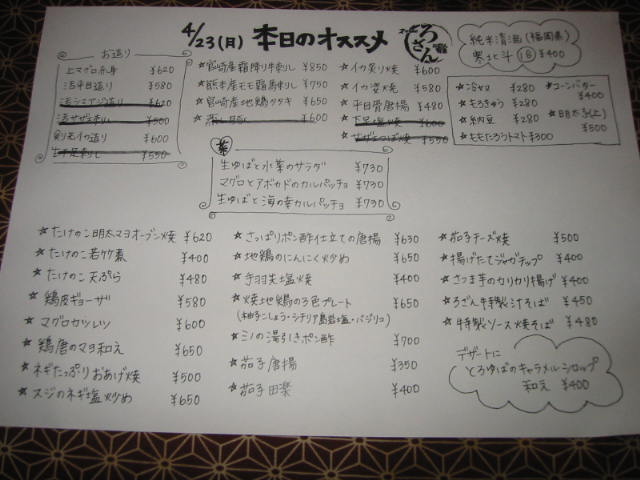 4/23(月) 本日のオススメ
ろざん
純米清酒(福岡県)
寒北斗 ¥400
お造り
上マグロ赤身 ¥620
活平目造り ¥580
活シマアジ造り ¥620
活サザエ造り ¥500
剣先イカ造り ¥600
¥550
★宮崎産霜降り牛刺し ¥850
★熊本産モモ霜馬刺し ¥750
★宮崎産地鶏タタキ ¥650
★ ¥600
★イカ炙り焼 ¥600
★イカ塩焼 ¥580
★平目骨唐揚 ¥480
★下足塩焼 ¥600
★サザエつぼ焼 ¥550
★冷ヤッコ ¥280
★もろきゅう ¥280
★納豆 ¥280
★ももたろうトマト ¥300
★コーンバター ¥400
¥500
生ゆばと水菜のサラダ ¥730
マグロとアボカドのカルパッチョ ¥730
生ゆばと海の幸カルパッチョ ¥730
★たけのこ明太マヨオーブン焼 ¥620
★たけのこ若竹煮 ¥400
★たけのこ天ぷら ¥480
★鶏皮ギョーザ ¥580
★マグロカツレツ ¥600
★鶏唐のマヨ和え ¥650
★ネギたっぷりおあげ焼 ¥500
★スジのネギ塩炒め ¥650
★さっぱりポン酢仕立ての唐揚 ¥630
★地鶏のにんにく炒め ¥650
★手羽先塩焼 ¥400
★焼地鶏の3色プレート ¥650
(柚子こしょう・シチリア島岩塩・バジリコ)
★ミノの湯引きポン酢 ¥700
★茄子唐揚 ¥350
★茄子田楽 ¥400
★茄子チーズ焼 ¥500
★揚げたてジャガチップ ¥400
★さつま芋のカリカリ揚げ ¥400
★ろざん特製汁そば ¥450
★特製ソース焼そば ¥480
デザートに
とろゆばのキャラメルシロップ
和え ¥400